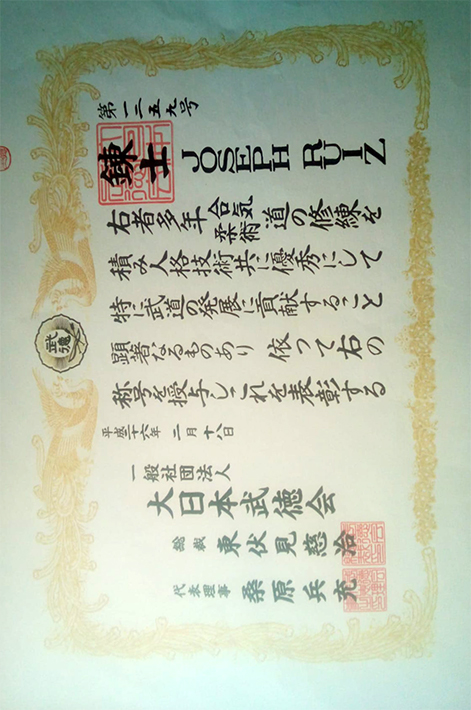 第一二五九号
錬士 JOSEPH RUIZ
右者多年合気柔術道の修練を
積み人格技術共に優秀にして
特に武道の発展に貢献すること
顕著なるものあり 依って右の
称号を授与しこれを表彰する
平成二十六年 二月十八日
一般社団法人
大日本武徳会
総裁 東伏見慈洽
代表理事 桑原兵充
武徳